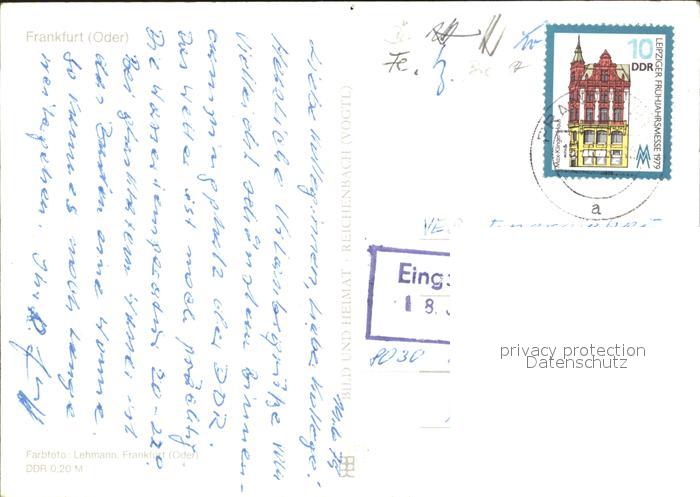 Frankfurt (Oder)
Liebe Kolleginnen, liebe Kollegen!
Herzliche Urlaubsgrüße vom
vielleicht schönsten Binnen-
campingplatz der DDR.
Das Wetter ist noch prächtig.
Die Wassertemperatur 20-22°.
Bei glasklarem Wasser ist
das Baden eine Wonne.
So kann es noch lange
weitergehen. Ihr
Farbfoto: Lehmann, Frankfurt (Oder)
DDR 0,20 M
BILD UND HEIMAT · REICHENBACH (VOGTL)
Fe.
10
DDR
LEIPZIGER FRÜHJAHRSMESSE 1979
MM
a
Eing
18.
8030
privacy protection
Datenschutz